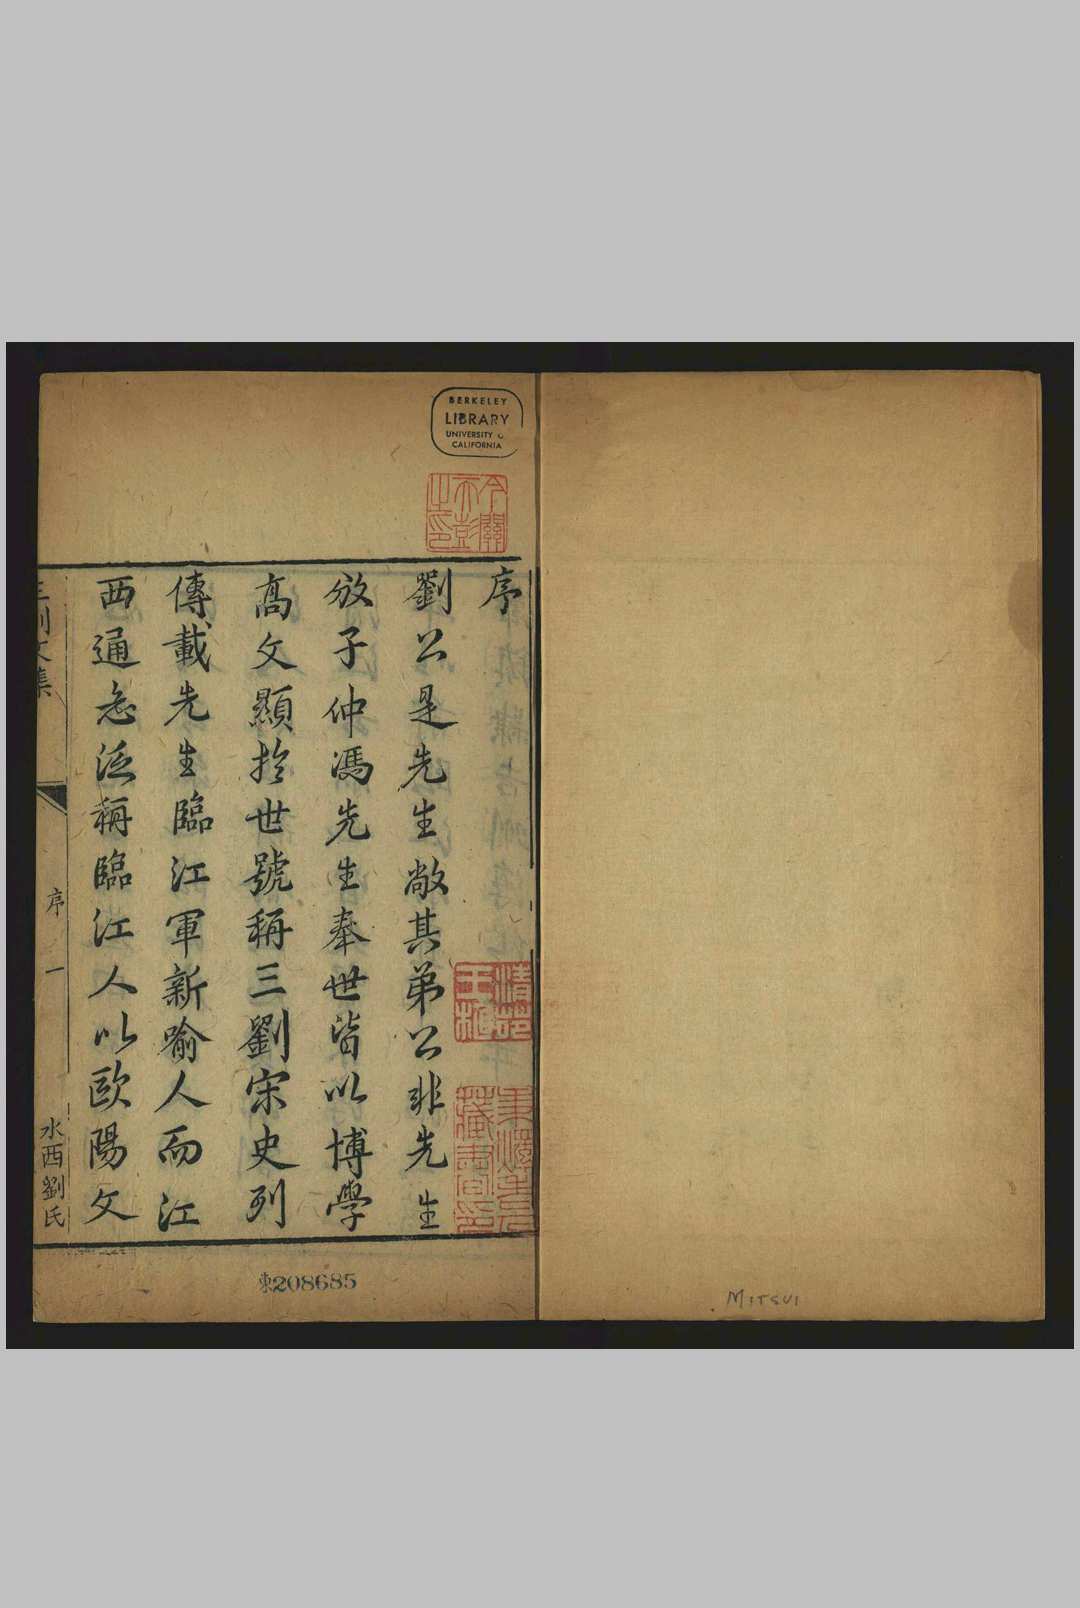 BERKELEY
LIBRARY
UNIVERSITY O
CALIFORNIA
今關天彭之印
序
劉公是先生敞其弟公非先生
攽子仲馮先生奉世皆以博學
高文顯於世號稱三劉宋史列
傳載先生臨江軍新喻人而江
西通志泛稱臨江人以歐陽文
三劉文集
序
一
水西劉氏
東208685
MITSUI